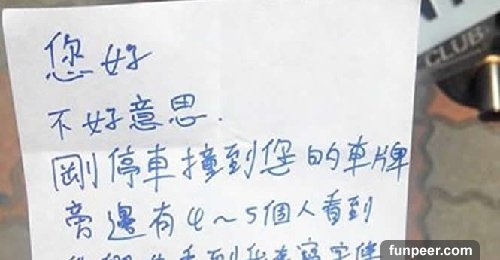 您好
不好意思.
剛停車撞到您的車牌
旁邊有4~5個人看到
CLUB
funpeer.com